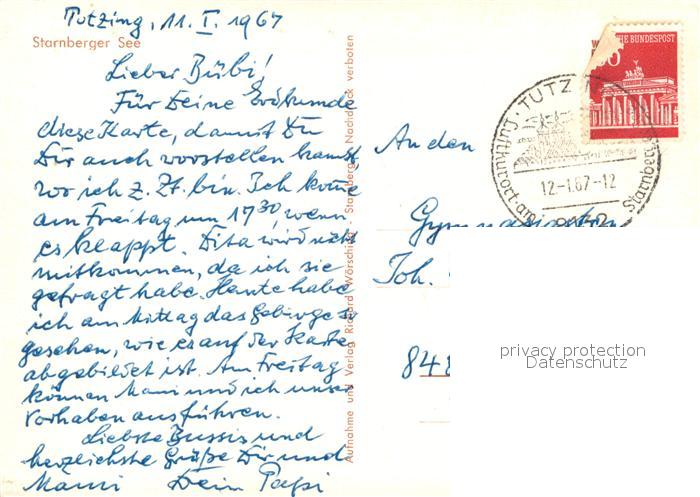 Tutzing, 11. I. 1967
Starnberger See
Lieber Bübi!
Für Deine Erdkunde
diese Karte, damit Du
Dir auch vorstellen kannst
wo ich z. Zt. bin. Ich komme
am Freitag um 17³⁰, wenn
es klappt. Dita wird nicht
mitkommen, da ich sie
gefragt habe. Heute habe
ich am Mittag das Gebirge so
gesehen, wie es auf der Karte
abgebildet ist. Am Freitag
können Mami und ich unser
Vorhaben ausführen.
Liebste Bussis und
herzlichste Grüße Dir und
Mami Dein Papi
Aufnahme und Verlag Richard Wörsching, Starnberg - Nachdruck verboten
An den
Gymnasiasten
Joh.
848
DEUTSCHE BUNDESPOST
TUTZING
12.-1.67-12
Luftkurort am Starnberger
privacy protection
Datenschutz